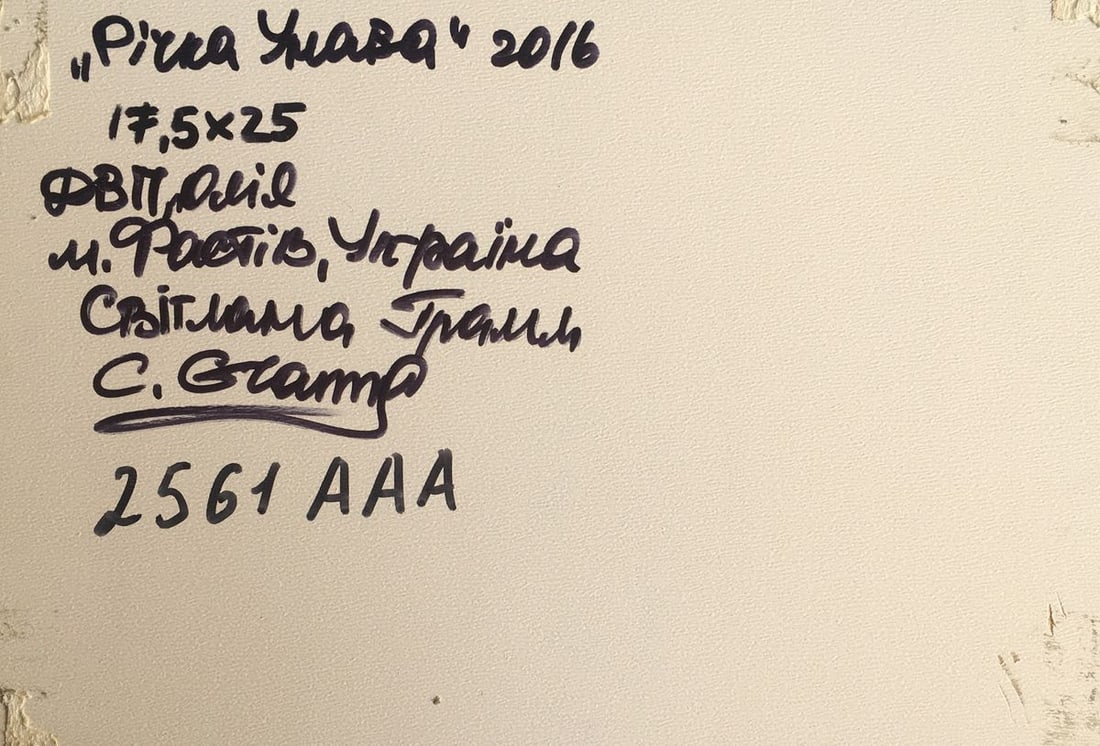 „Річка Унава“ 2016
17,5×25
ДВП, олія
м. Фастів, Україна
Світлана Грамм
С. Gramm
2561 AAA